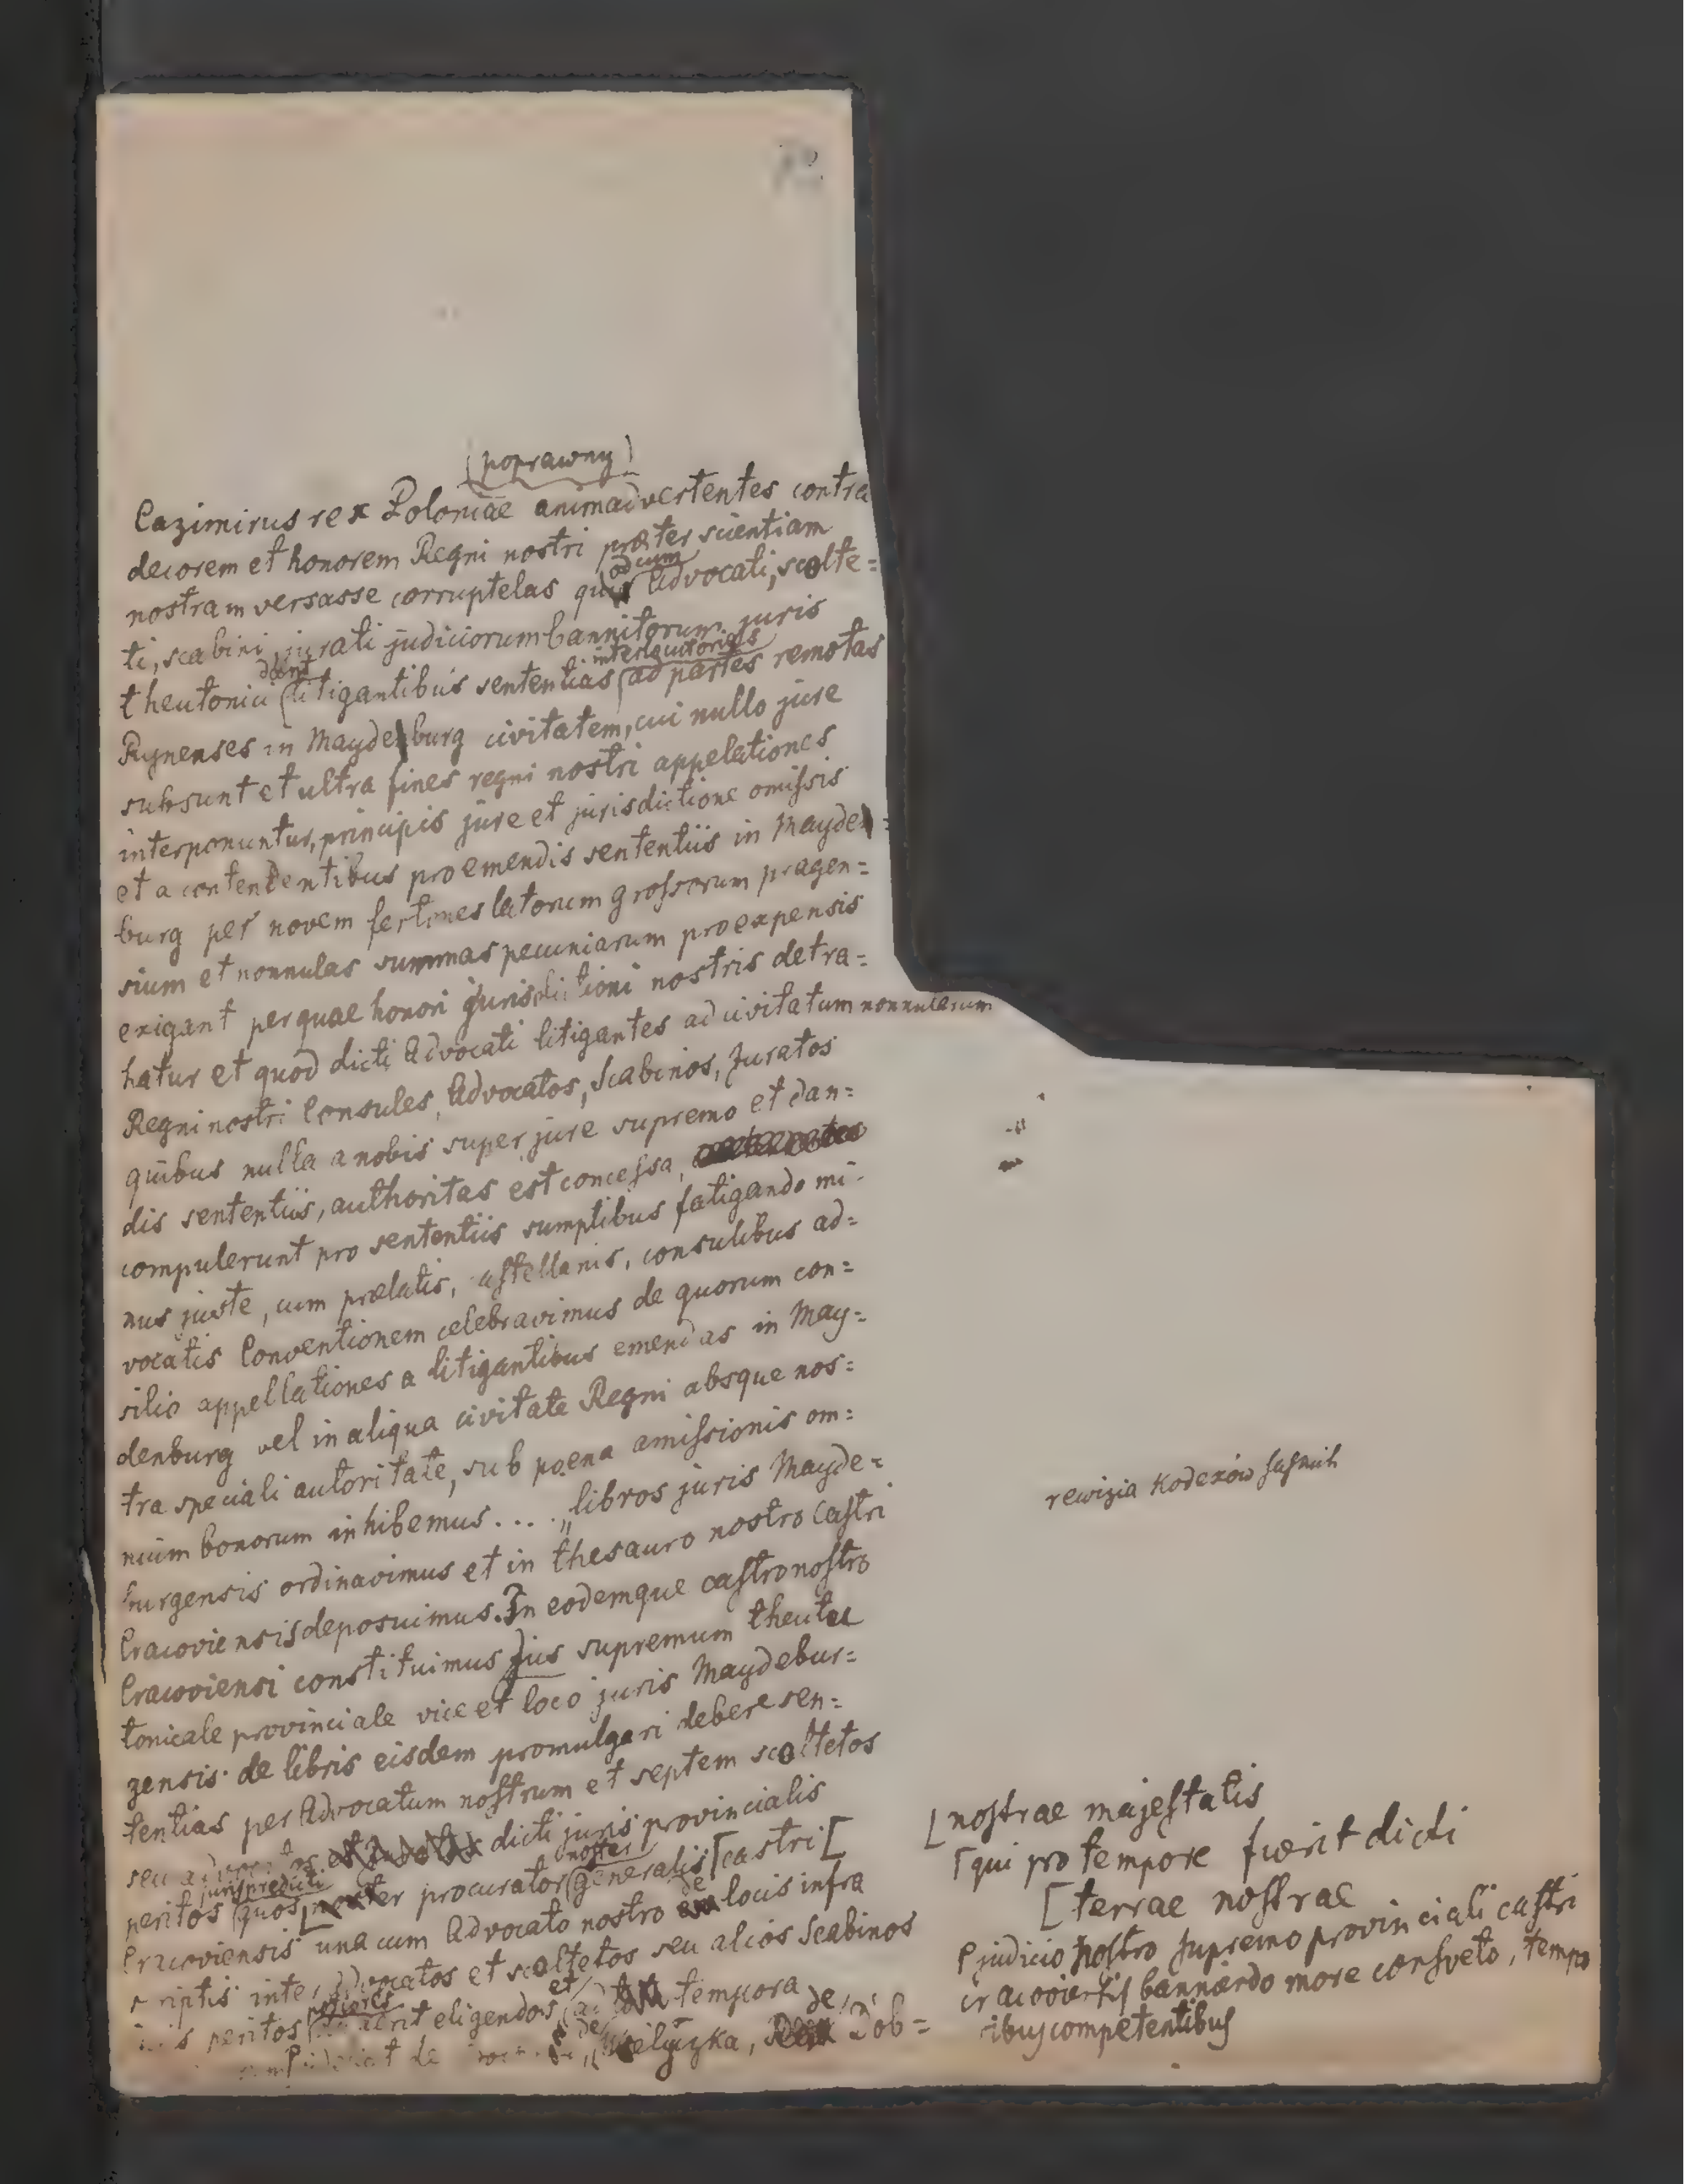 (poprawny)
Cazimirus rex Poloniae animadvertentes contra
decorem et honorem Regni nostri praeter scientiam
nostram versasse corruptelas quod cum Advocati, scolte=
ti, scabini, jurati judiciorum bannitorum juris
theutonici dant litigantibus sententias interlocutorias ad partes remotas
Rynenses in Maydeburg civitatem, cui nullo jure
subsunt et ultra fines regni nostri appelationes
interponuntur, principis jure et jurisdictione omissis
et a contendentibus pro emendis sententiis in Mayde=
burg per novem fertones latorum grossorum pragen=
sium et nonnulas summas pecuniarum pro expensis
exigant per quae honori jurisdictioni nostris detra=
hatur et quod dicti Advocati litigantes ad civitatum nonnularum
Regni nostri Consules, Advocatos, Scabinos, Juratos
quibus nulla a nobis super jure supremo et dan=
dis sententiis, authoritas est concessa,
compulerunt pro sententiis sumptibus fatigando mi-
nus juste, cum praelatis, castellanis, consulibus ad=
vocatis Conventionem celebravimus de quorum con=
silio appellationes a litigantibus emendas in May=
denburg vel in aliqua civitate Regni absque nos=
tra speciali autoritate, sub poena amissionis om=
nium bonorum inhibemus.... „libros juris Mayde=
burgensis ordinavimus et in thesauro nostro Castri
Cracoviensis deposuimus. In eodemque castro nostro
Cracoviensi constituimus Jus supremum theu
tonicale provinciale vice et loco juris Maydebur=
gensis de libris eisdem promulgari debere sen=
tentias per Advocatum nostrum et septem scoltetos
seu dicti juris provincialis
peritos quos procurator noster generalis castri
Cracoviensis una cum Advocato nostro de locis infra
scriptis inter advocatos et scoltetos seu alios Scabinos
peritos eligendos et tempora
de Wieliczka, de Dob=
rewizia Kodexów
nostrae majestatis
qui pro tempore fuerit dicti
terrae nostrae
judicio nostro supremo provinciali castri
cracoviensis bannendo more consveto, tempo
ribus competentibus